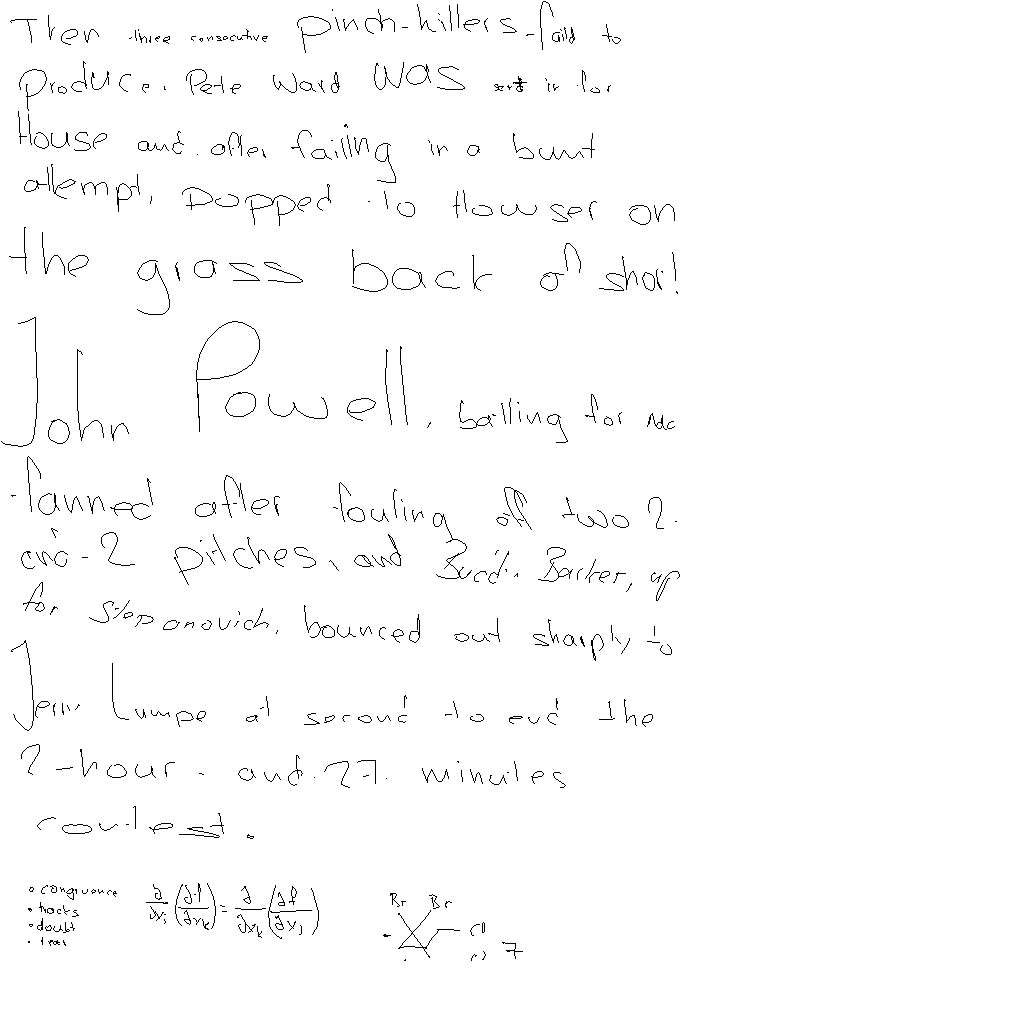 Then three consecutive pinch-hitters faild to
produce. Pete Ward was sent in for
House and after failing in a bunt
attempt, popped to Howser on
the grass back of short
John Powell, batting for Mc
fanned after fouling off two 2-
and-2 pitches, and Buddy Barker, up
for Stepanovich, bounced out sharply to
Jerry Lumpe at second to end the
2-hour-and-27-minutes
contest.
• congruence
• hocks
• doubt
∂/∂xⱼ (∂f/∂xₖ) = ∂/∂xₖ (∂f/∂xⱼ)
Br Br
Cl
7